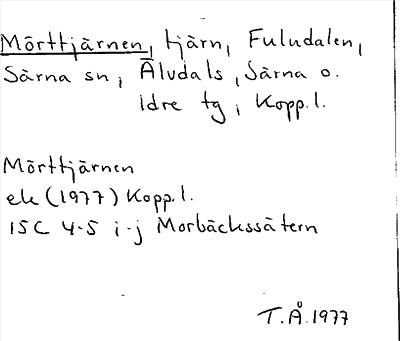 Mörttjärnen, tjärn, Fuludalen,
Särna sn, Älvdals, Särna o.
Idre tg, Kopp.l.
Mörttjärnen
ek (1977) Kopp.l.
15C 4-5 i-j Morbäckssätern
T.Å.1977